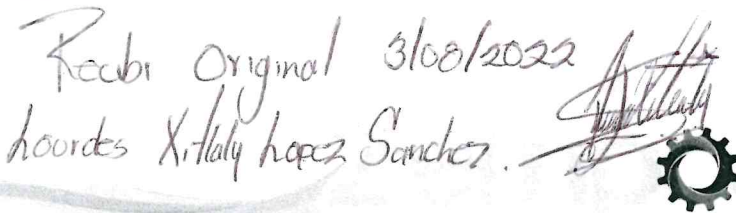 Recibi Original 3/08/2022
Lourdes Xitlaly Lopez Sanchez.